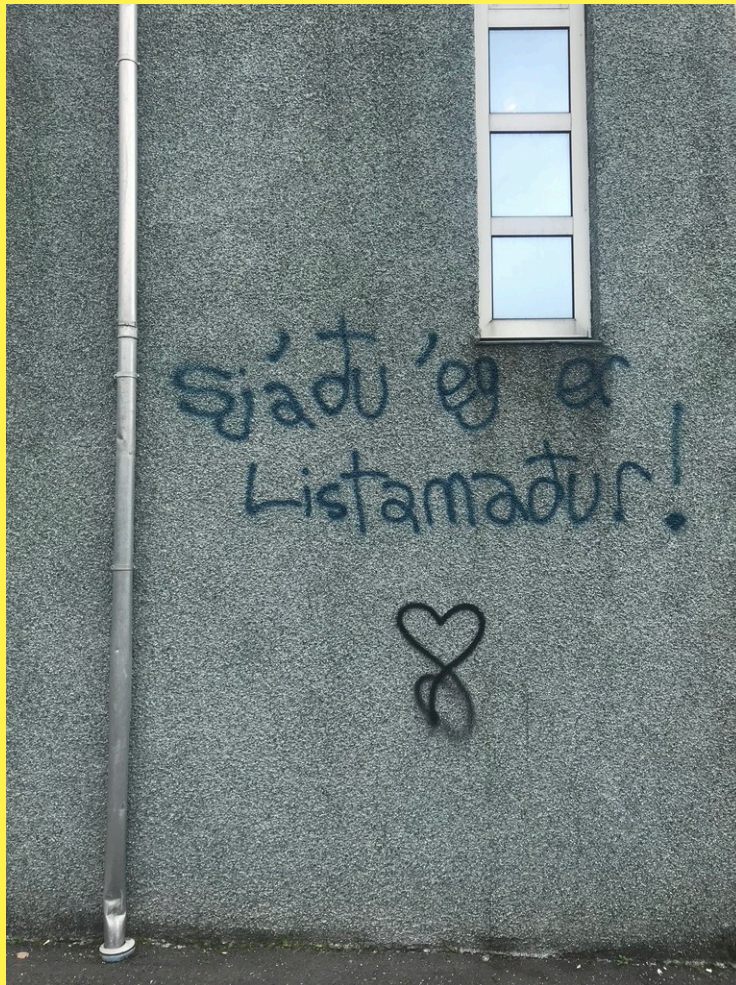 Sjáðu ég er
Listamaður!